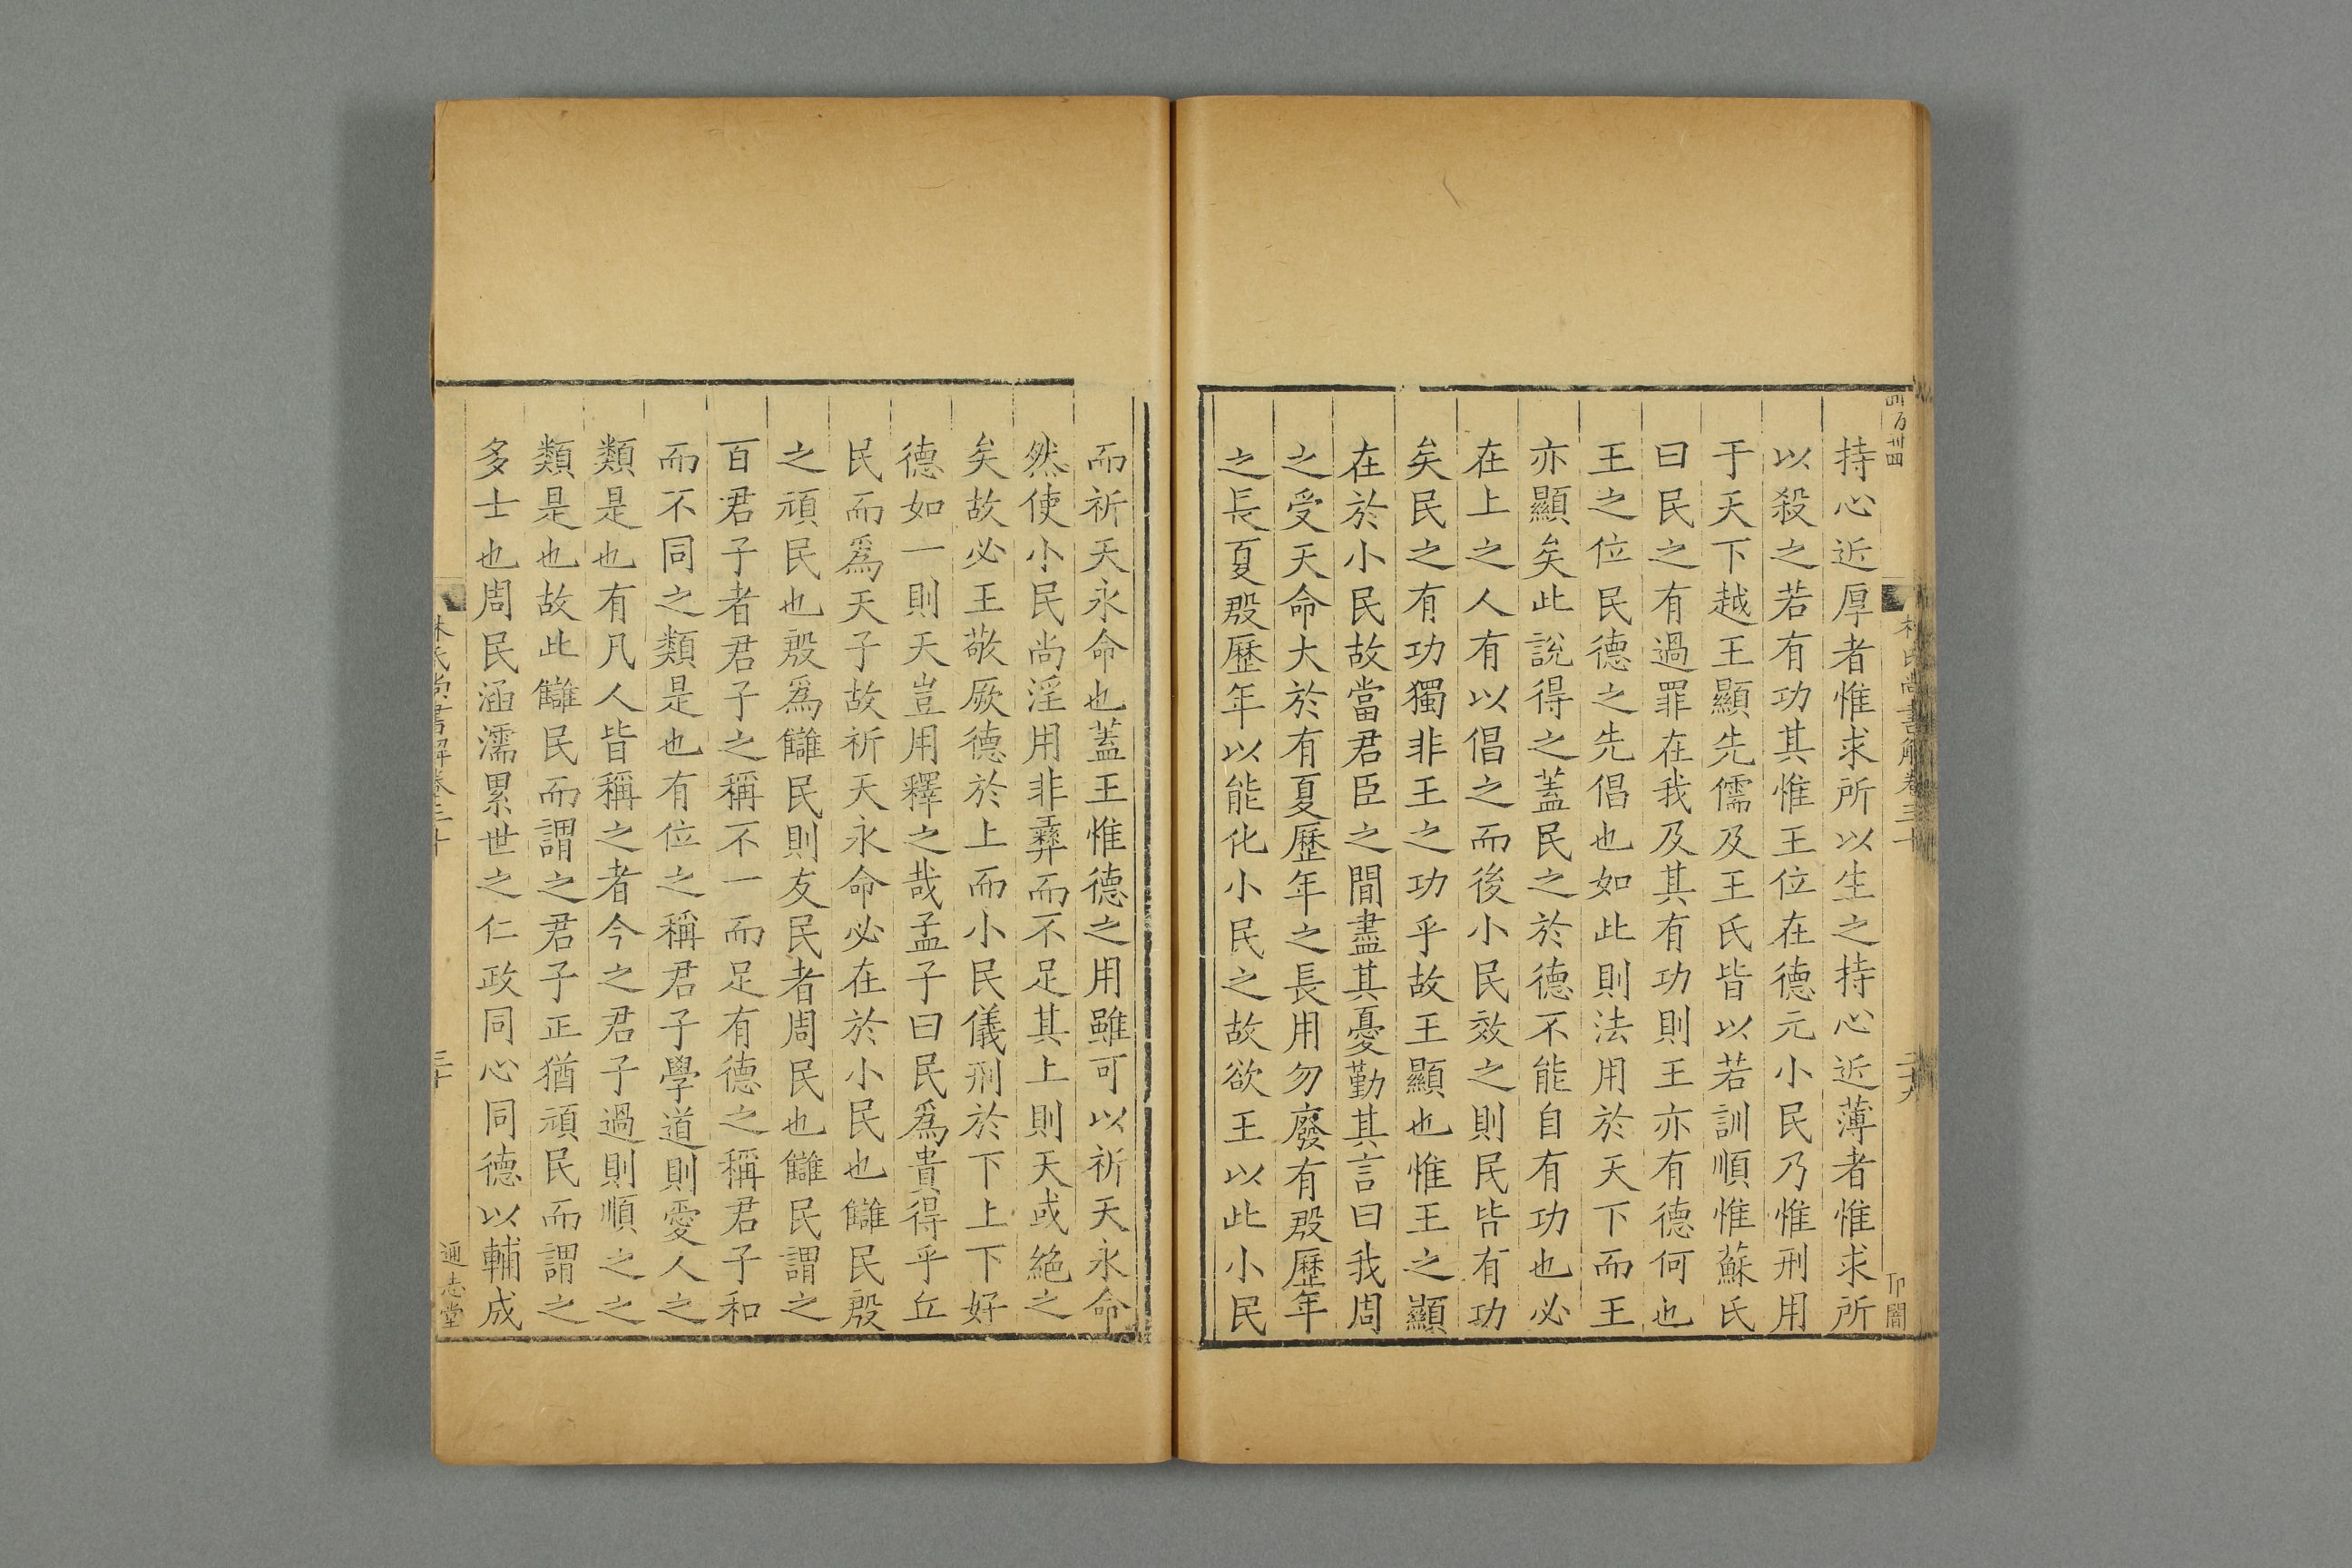 持心近厚者惟求所以生之持心近薄者惟求所
以殺之若有功其惟王位在德元小民乃惟刑用
于天下越王顯先儒及王氏皆以若訓順惟蘇氏
曰民之有過罪在我及其有功則王亦有德何也
王之位民德之先倡也如此則法用於天下而王
亦顯矣此說得之蓋民之於德不能自有功也必
在上之人有以倡之而後小民效之則民皆有功
矣民之有功獨非王之功乎故王顯也惟王之顯
在於小民故當君臣之間盡其憂勤其言曰我周
之受天命大於有夏歷年之長用勿廢有殷歷年
之長夏殷歷年以能化小民之故欲王以此小民
而祈天永命也蓋王惟德之用雖可以祈天永命
然使小民尚淫用非彝而不足其上則天或絕之
矣故必王敬厥德於上而小民儀刑於下上下好
德如一則天豈用釋之哉孟子曰民爲貴得乎丘
民而爲天子故祈天永命必在於小民也讎民殷
之頑民也殷爲讎民則友民者周民也讎民謂之
百君子者君子之稱不一而足有德之稱君子和
而不同之類是也有位之稱君子學道則愛人之
類是也有凡人皆稱之者今之君子過則順之之
類是也故此讎民而謂之君子正猶頑民而謂之
多士也周民涵濡累世之仁政同心同德以輔成
林氏尚書解卷三十
三十
通志堂